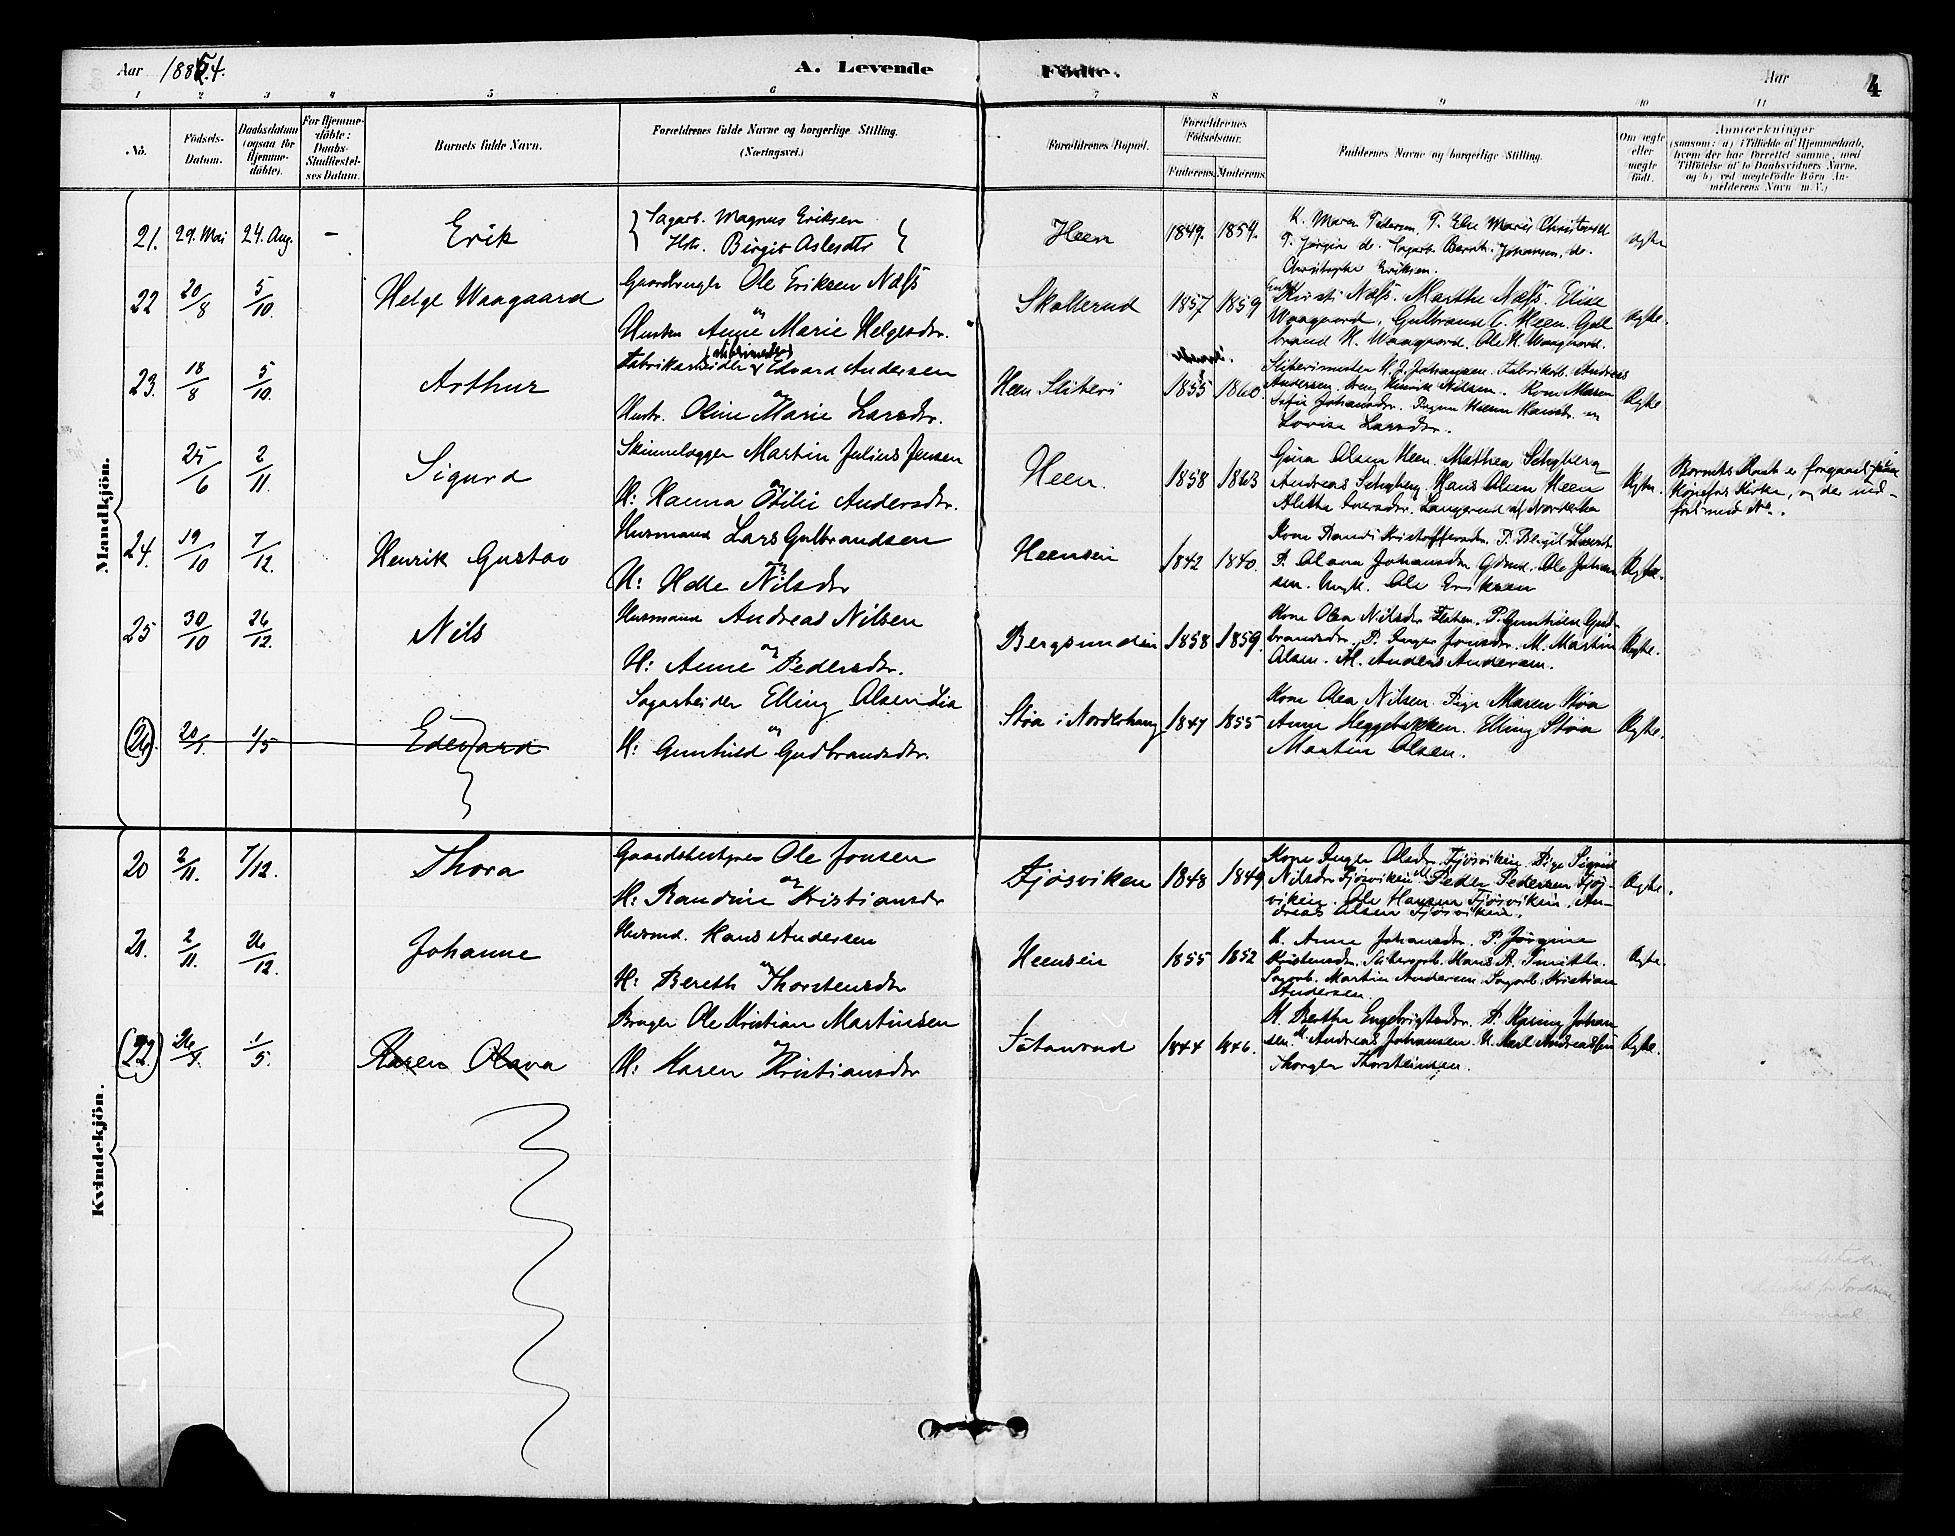 Aar 1884. A. Levende Födte. Aar 4
1 2 3 4 5 6 7 8 9 10 11
No. Födsels-Datum. Daabsdatum (ogsaa for Hjemmedöbte). For Hjemmedöbte: Daabs-Stadfæstelses Datum. Barnets fulde Navn. Forældrenes fulde Navne og borgerlige Stilling. (Næringsvei.) Forældrenes Bopæl. Forældrenes Födselsaar. Faderens Moderens Faddernes Navne og borgerlige Stilling. Om ægte eller uægte födt. Anmærkninger (saasom: a) i Tilfælde af Hjemmedaab, hvem der har forrettet samme, med Tilföielse af to Daabsvidners Navne, og b) ved uægtefödte Börn Anmelderens Navn m. V.)
Mandkjön.
21. 29. Mai 24. Aug. - Erik Sagarb. Magnus Eriksen Heen 1849. 1859. K. Maren Pedersen, P. Else Marie
Hstr. Birgit Aslesdtr P. Jörgine do. Sagarb. Bernh. Johansen, do.
Christophe Eriksen.
22 20/8 5/10. Helge Waagaard Gaardbruger Ole Eriksen Næss Skollerud 1857 1859 Kristi Næss. Marthe Næss. Elise Ægte.
og Waagaard, Gulbrand C. Heen Gul
Hustru Anne Marie Helgesdr. brand H. Waagaard. Ole H. Waagaard.
23. 18/8 5/10. Arthur Fabrikarbeider Edvard Andersen Heen Sliberi 1855 1860. Slibermester H. J. Johansen. Fabrikarb. Andreas Ægte
og Andersen. Ung. Henrik Nilsen. Kone Maren
Hustr. Oline Marie Larsdr. Sofie Johansdr. Pigen
Lovise Larsdr.
25/6 2/11. Sigurd Martin Julius Jensen Heen. 1858 1863 Olsen Heen. Mathea Schyberg Ægte. Barnets Daab er foregaaet i
og Andreas Schyberg. Hans Olsen Heen Hönefos Kirke, og der ind-
H: Hanna Otilie Andersdr. Alethe Iversdr. Langerud af Norderhov fört med No.
24. 19/10 7/12. Henrik Gustav Husmand Lars Gulbrandsen Heenseie 1842 1840. Kone Randi Kristoffersdr. P. Birgit Larsdr. Ægte.
og P. Olava Johansdr. Gdmd. Ole Johan
H: Helle Nilsdr sen. Ungk. Ole Eriksen
25 30/10 26/12. Nils Husmand Andreas Nilsen Bergsundeie 1858 1859. Kone Olea Nilsdr. P. Gunhild Gud- Ægte.
og brandsdr. P. Inger Jonsdr. M. Martin
H: Anne Pedersdr. Olsen. M. Anders Andersen.
(26). 20/1. 1/5 Edevard Sagarbeider Elling Olsen Lia Støa i Norderhoug 1847 1855 Kone Olea Nilsen. Pige Maren Støa Ægte.
og Anne Heggebakken. Elling Støa
H: Gunhild Gudbrandsdr. Martin Olsen.
Kvindekjön.
20 2/11. 7/12. Thora Gaardsbestyrer Ole Jonsen Fjösviken 1848 1849 Kone Inger Olsdr. Fjösviken. Pige Sigrid Ægte.
og Nilsdr Fjösviken. Peder Pedersen Fjös-
H: Randine Kristiansdr viken. Ole Hansen Fjösviken. An-
dreas Olsen Fjösviken.
21. 2/11. 26/12. Johanne Husmd. Hans Andersen Heenseie 1855 1852 K. Anne Johansdr. P. Jörgine Ægte.
og Kristensdr. Hans A. Smith.
H: Bereth Thorstensdr Sagarb. Martin Andersen. Sagarb. Kristian
Andersen.
(22.) 26/1. 1/5. Karen Olava Bruger Ole Kristian Martinsen 1844 1846. K. Berthe Engebrigtsdr. P. Karine Johan Ægte.
og sen. Andreas Johansen. U. Karl Andreassen
H: Karen Kristiansdr Thorger Thorsteinsen.